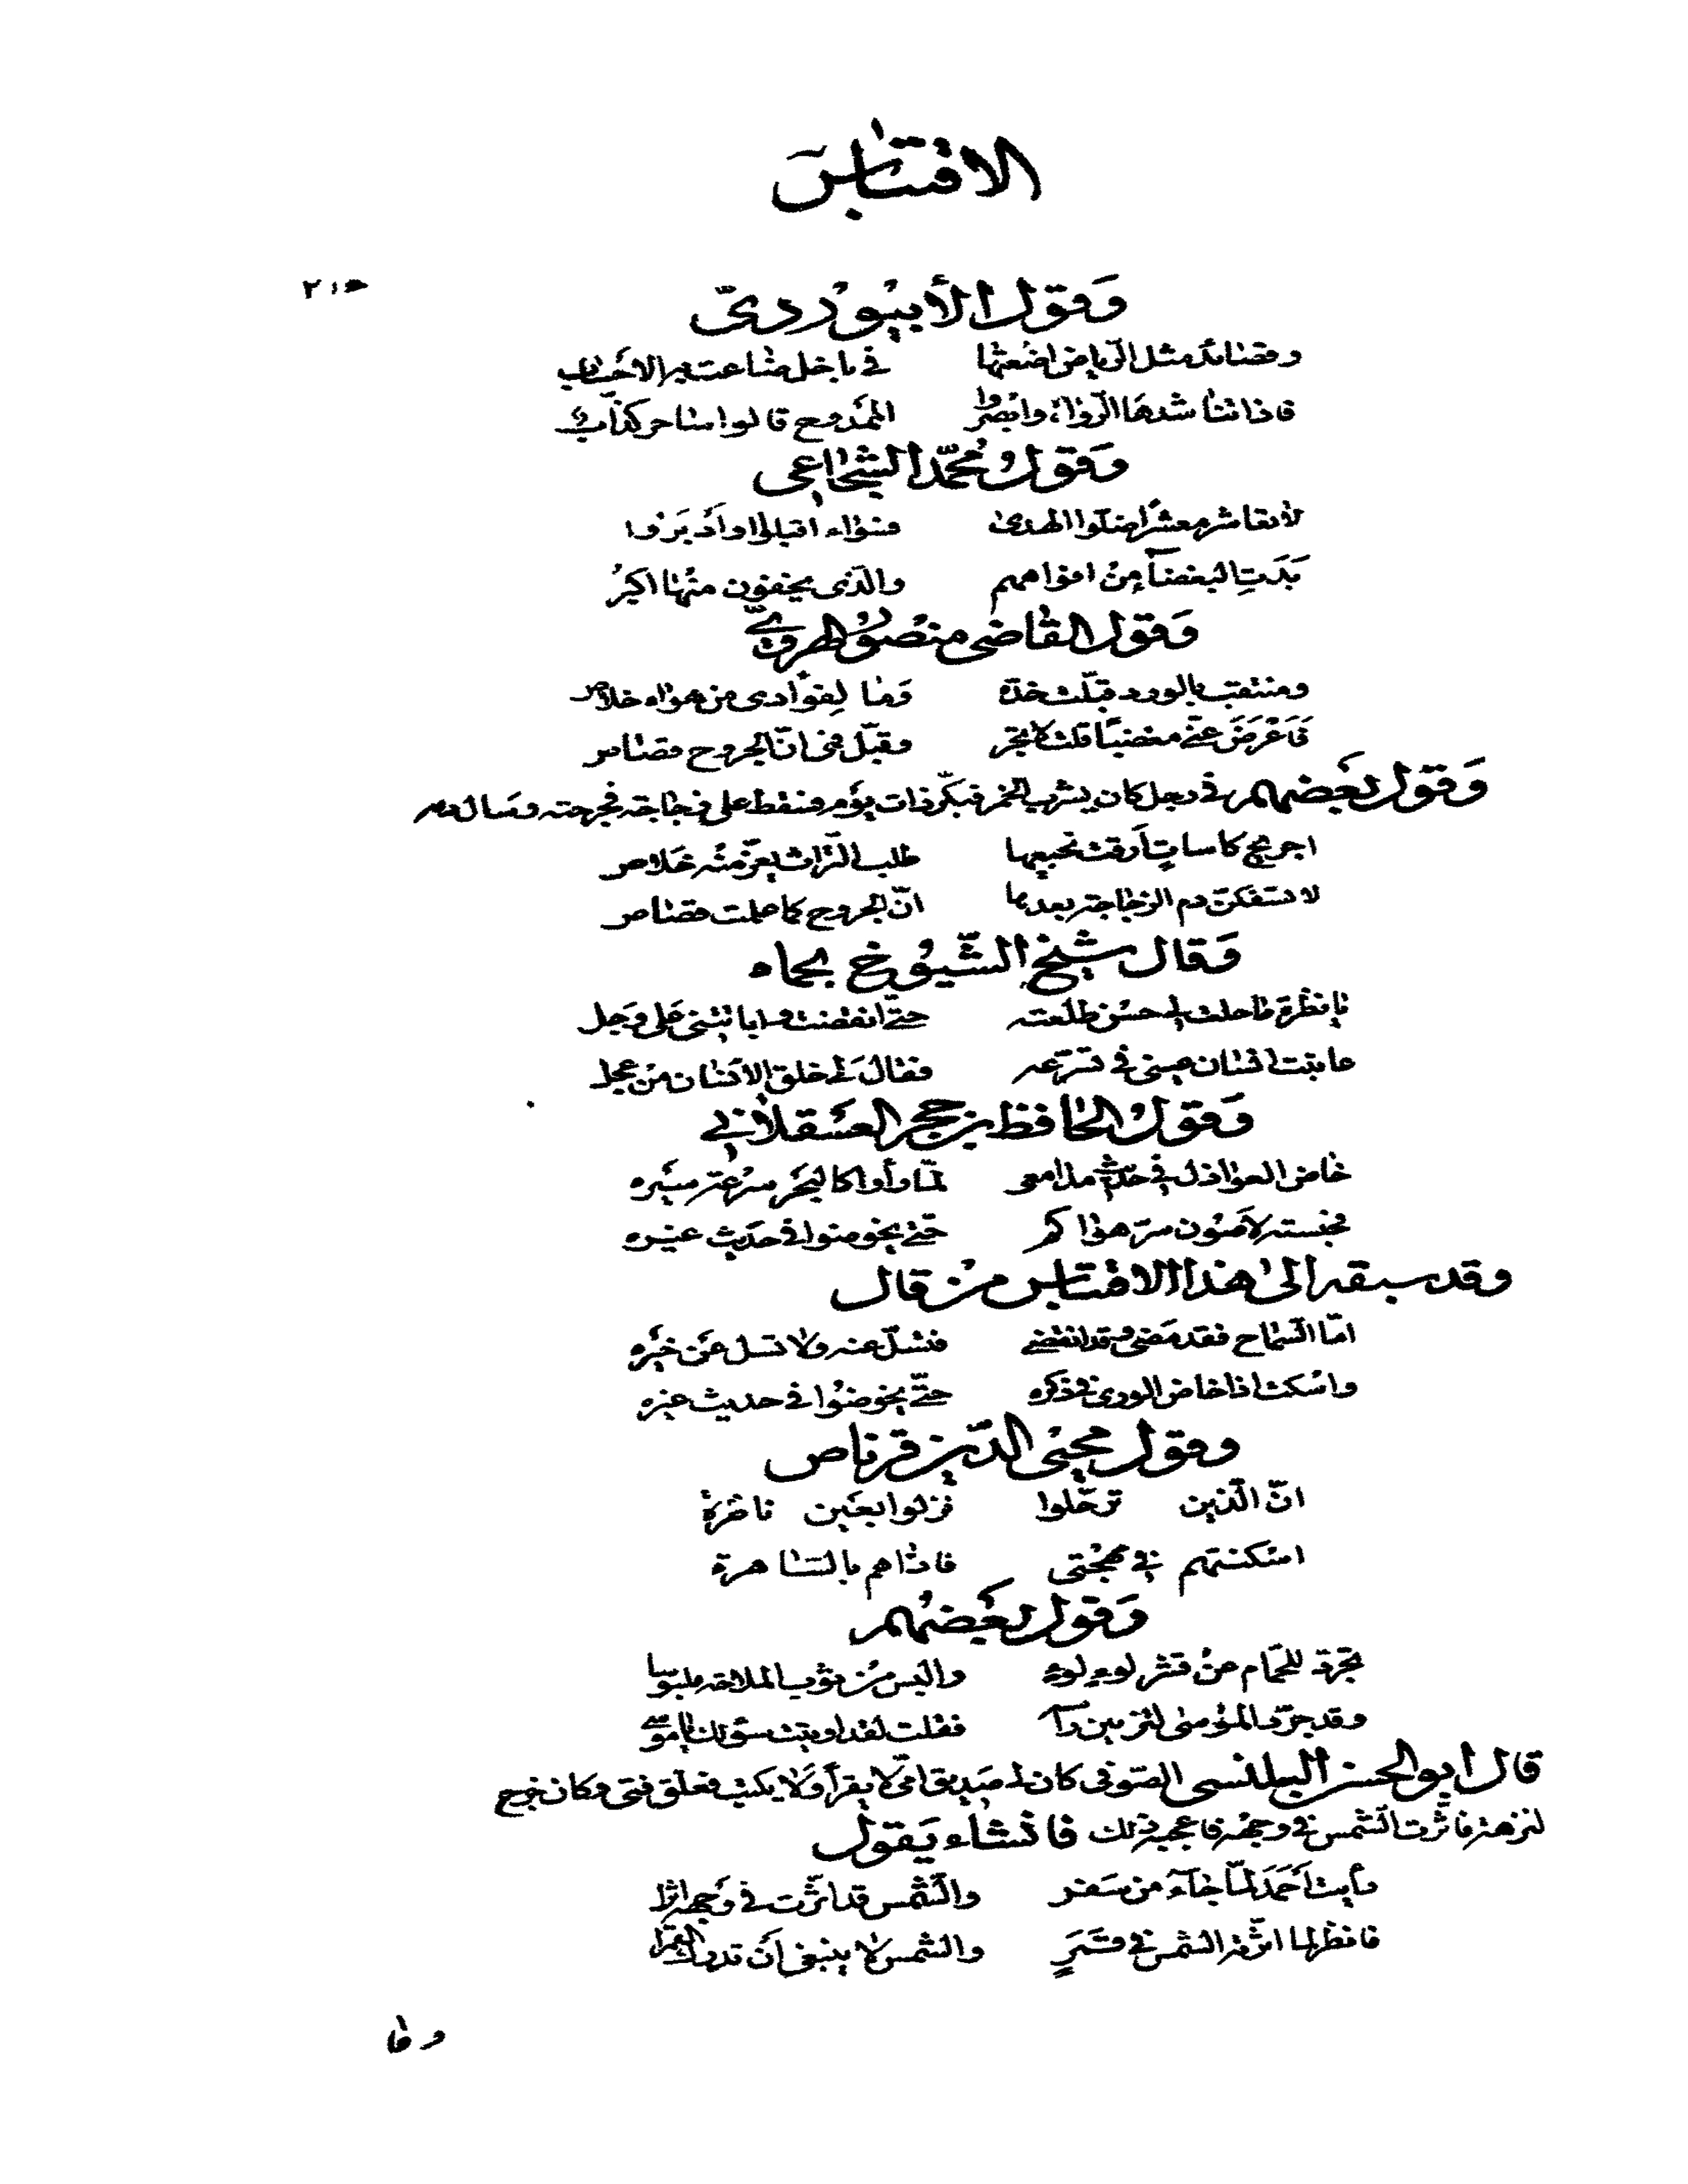 الاقتباس
وَقول الأبيْوَرْديّ
وقصائد مثل الرّياض اضعتها في باخل ضاعت به الاحساب
فاذا تناشدها الرّواة وابصروا الممدوح قالوا ساحر كذّاب
وَقول مُحمّد الشجاعي
لا تعاشر معشرًا ضلّوا الهدى فسواء اقبلوا او أدْبَرُوا
بَدَتِ البغضاءُ مِنْ افواههم والّذي يخفون منها اكبرُ
وَقول القاضي منصور الهرويّ
ومنتقب بالورد قبّلت خدّه وَما لِفؤادي من هواه خلاص
فَاَعْرَضَ عنّي مغضبًا قلت لا تجر وقبّل فمي انّ الجروح قصاص
وَقول بَعضهم في رجل كان يشرب الخمر فبكّر ذات يوم فسقط على زجاجة فجرحته وسال دمه
اجريح كاساتٍ أرقت نجيعها طلب التراث يعزّ منه خلاص
لا تسفكنّ دم الزجاجة بعدها انّ الجروح كما علمت قصاص
وَقال شيخ الشّيوخ بحماه
يا نظرة ما حلت لي حسن طلعته حتّى انقضت وادابتني على وَجل
عاتبت انسان عيني في تسرّعه فقال لي خلق الانسان من عجل
وَقول الحافظ بن حجر العسقلاني
خاض العواذل في حديث مدامعي لمّا رأوا كالبحر سرعة سيره
فحبسته لاصون سرّ هواكم حتّى يخوضوا في حديث غيره
وقد سبقه الى هذا الاقتباس من قال
امّا السّماح فقد مَضى وقد انقضى فتسلّ عنه ولا تسل عن خبره
واسكت اذا خاض الورى في ذكره حتّى يخوضوا في حديث غيره
وقول محيي الدّين قرناص
انّ الّذين ترحّلوا نزلوا بعين ناظرة
اسكنتهم في مهجتي فاذا هم بالساهرة
وَقول بَعضهم
تجرّد للحمّام عن قشر لؤلؤ والبس من ثوب الملاحة ملبوسا
وقد جرّد الموسى لتزيين رأسه فقلت لقد اوتيت سؤلك يا موسى
قال ابو الحسن البلنسي الصّوفي كان لي صديق امّي لا يقرأ وَلا يكتب فعلق فتى وكان خرج
لنزهة فاثّرت الشمس في وجهه فاعجبه ذلك فانشاء يَقول
رأيت أحمَد لمّا جاء من سفر والشمس قد اثّرت في وجهه اثرا
فانظر لما اثّرته الشمس في قمرٍ والشمس لا ينبغي أن تدرك القمرا
وقا